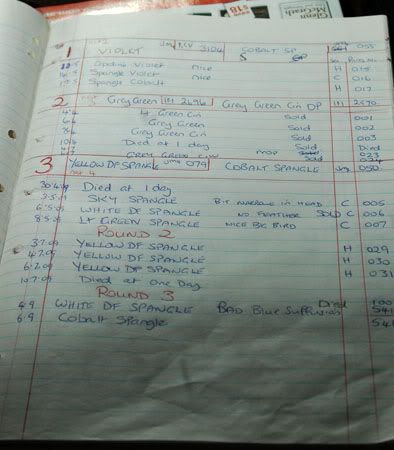 1 VIOLET 3104 COBALT SP 055
S
Opaline Violet nice H 015
Spangle Violet nice C 016
Spangle Cobalt H 017
2 Grey Green 2696 Grey Green Cin DP 2570
Lt Green Cin Sold 001
Grey Green Sold 002
Grey Green Cin Sold 003
Died at 1 day Died
Grey Green Sold 033
3 YELLOW DF SPANGLE 079 COBALT SPANGLE 050
30.4.09 Died at 1 day
3.5.09 SKY SPANGLE BIT NARROW IN HEAD C 005
6.5.09 WHITE DF SPANGLE NO FEATHER SOLD C 006
8.5.09 LT GREEN SPANGLE NICE BIG BIRD C 007
ROUND 2
3.7.09 YELLOW DF SPANGLE H 029
4.7.09 YELLOW DF SPANGLE H 030
6.7.09 YELLOW DF SPANGLE H 031
10.7.09 Died at One Day
ROUND 3
4.9 WHITE DF SPANGLE BAD Blue Suffusion Died 100
6.9 Cobalt Spangle 541